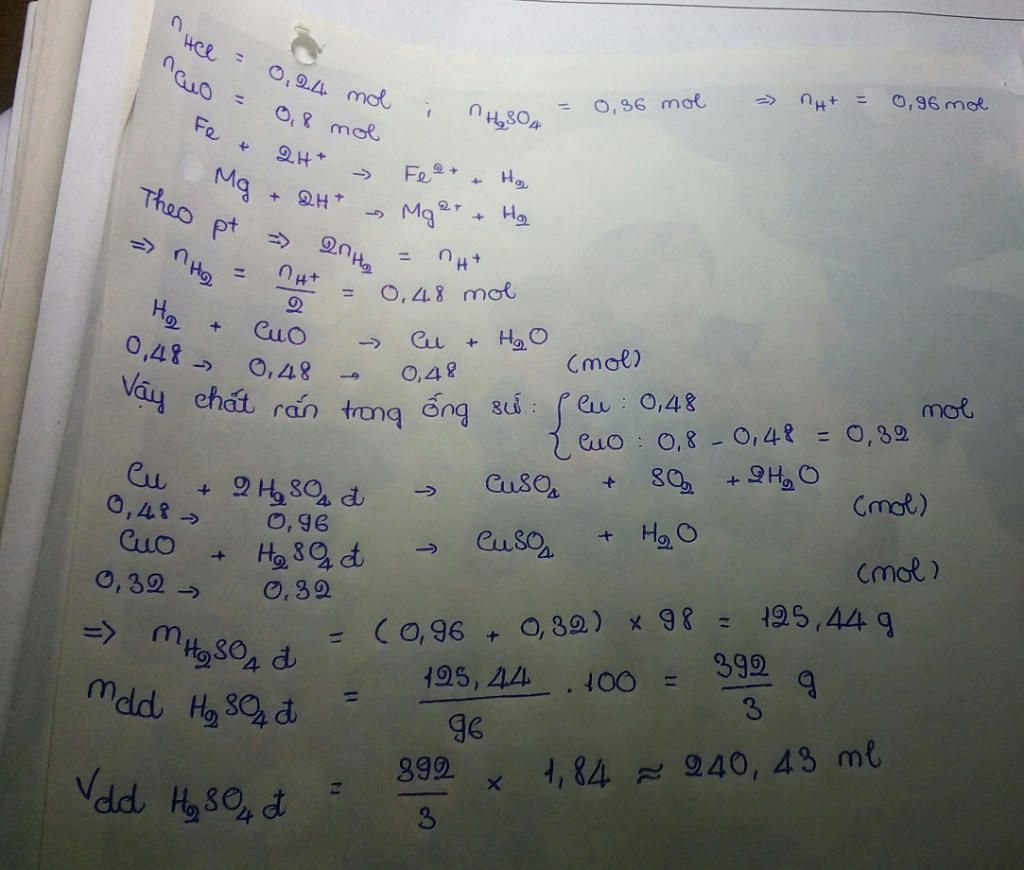 nHCl = 0,24 mol ; nH₂SO₄ = 0,36 mol => nH+ = 0,96 mol
nCuO = 0,8 mol
Fe + 2H⁺ → Fe²⁺ + H₂
Mg + 2H⁺ → Mg²⁺ + H₂
Theo pt => 2nH₂ = nH+
=> nH₂ = nH+/2 = 0,48 mol
H₂ + CuO → Cu + H₂O
0,48 → 0,48 → 0,48 (mol)
Vậy chất rắn trong ống sứ: { Cu : 0,48 mol
CuO : 0,8 - 0,48 = 0,32
Cu + 2H₂SO₄ đ → CuSO₄ + SO₂ + 2H₂O
0,48 → 0,96 (mol)
CuO + H₂SO₄ đ → CuSO₄ + H₂O
0,32 → 0,32 (mol)
=> mH₂SO₄ đ = (0,96 + 0,32) × 98 = 125,44 g
mdd H₂SO₄ đ = 125,44/96 . 100 = 392/3 g
Vdd H₂SO₄ đ = 392/3 × 1,84 ≈ 240,43 ml